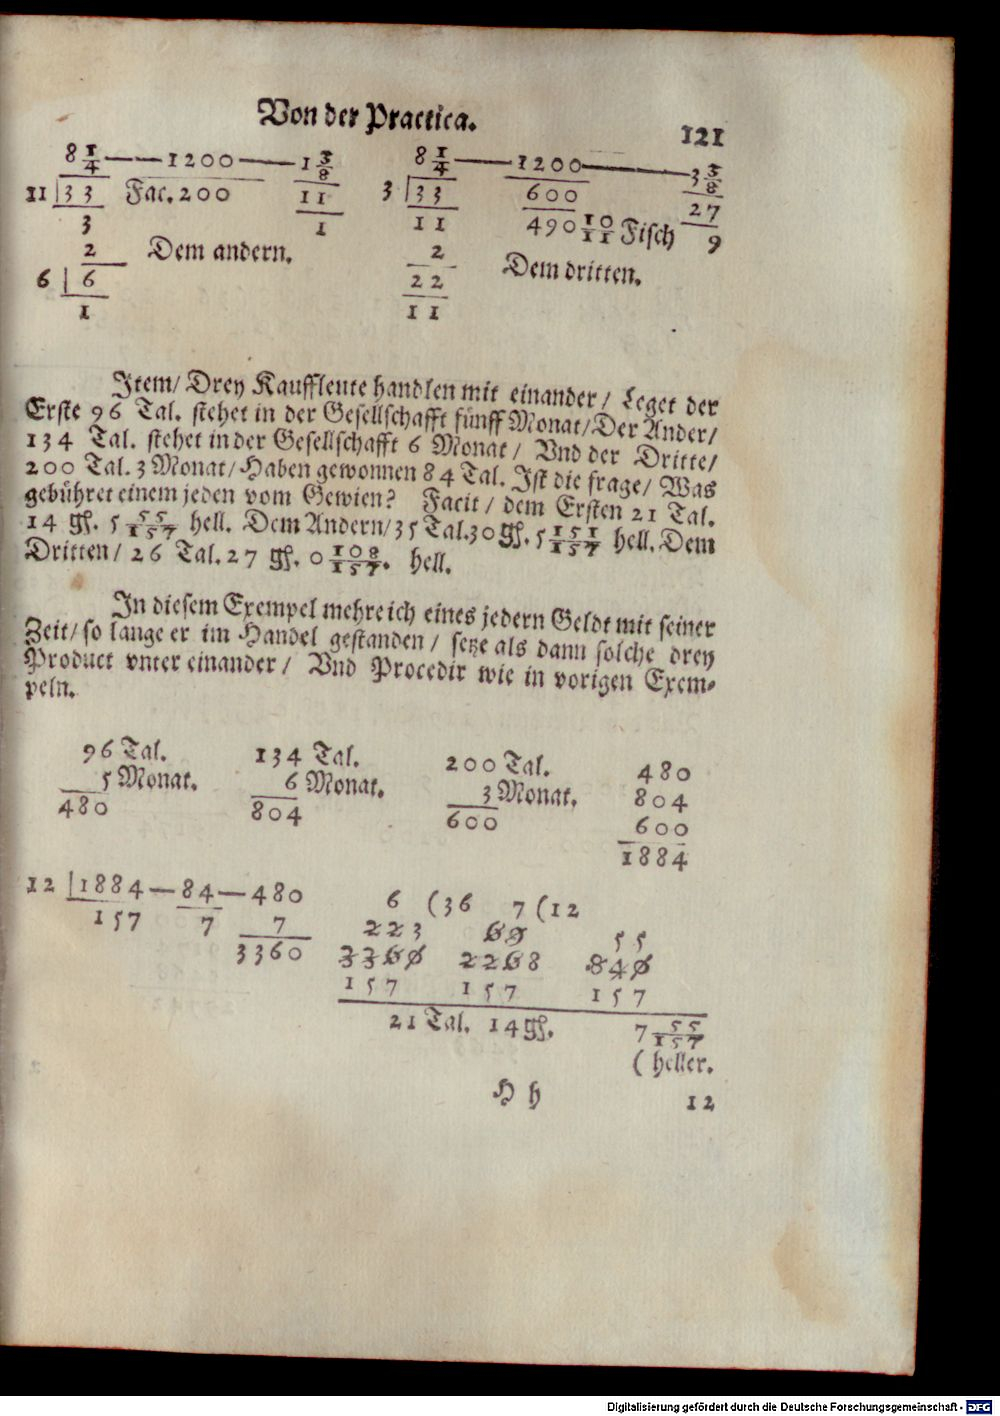 Von der Practica.
121
8 1/4 — 1200 — 1 3/8
11 | 33 Fac. 200 11
3 1
2 Dem andern.
6 | 6
1
8 1/4 — 1200 — 3 3/8
3 | 33 600 27
11 490 10/11 Fisch 9
2 Dem dritten.
22
11
Item/ Drey Kauffleute handlen mit einander/ Leget der
Erste 96 Tal. stehet in der Gesellschafft fünff Monat/Der Ander/
134 Tal. stehet in der Gesellschafft 6 Monat/ Vnd der Dritte/
200 Tal. 3 Monat/Haben gewonnen 84 Tal. Ist die frage/ Was
gebühret einem jeden vom Gewien? Facit/ dem Ersten 21 Tal.
14 gl. 5 55/157 hell. Dem Andern/35 Tal.30 gl. 5 151/157 hell. Dem
Dritten/ 26 Tal. 27 gl. 0 108/157. hell.
In diesem Exempel mehre ich eines jedern Geldt mit seiner
Zeit/so lange er im Handel gestanden/ setze als dann solche drey
Product vnter einander/ Vnd Procedir wie in vorigen Exem-
peln.
96 Tal. 134 Tal. 200 Tal. 480
5 Monat. 6 Monat. 3 Monat. 804
480 804 600 600
1884
12 | 1884 — 84 — 480
157 7 7
3360
6 (36 7 (12
223 69 55
3360 2268 840
157 157 157
21 Tal. 14 gl. 7 55/157
(heller.
H h 12
Digitalisierung gefördert durch die Deutsche Forschungsgemeinschaft - DFG